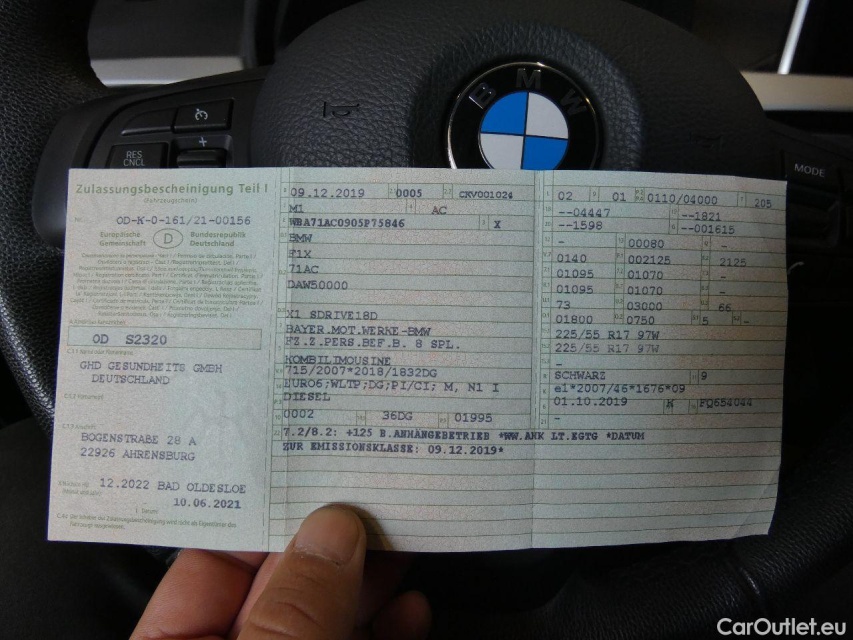 BMW
RES
CNCL
+
MODE
Zulassungsbescheinigung Teil I
(Fahrzeugschein)
Nr. OD-K-0-161/21-00156
Europäische
Gemeinschaft
D
Bundesrepublik
Deutschland
OD S2320
GHD GESUNDHEITS GMBH
DEUTSCHLAND
BOGENSTRABE 28 A
22926 AHRENSBURG
12.2022 BAD OLDESLOE
10.06.2021
09.12.2019 0005 CKV001024
M1 AC
WBA71AC0905P75846 X
BMW
F1X
71AC
DAW50000
X1 SDRIVE18D
BAYER.MOT.WERKE-BMW
FZ.Z.PERS.BEF.B. 8 SPL.
KOMBILIMOUSINE
715/2007*2018/1832DG
EURO6;WLTP;DG;PI/CI; M, N1 I
DIESEL
0002 36DG 01995
7.2/8.2: +125 B.ANHÄNGEBETRIEB *WW.AHK LT.EGTG *DATUM
ZUR EMISSIONSKLASSE: 09.12.2019*
02 01 0110/04000 205
--04447 --1821
--1598 --001615
- 00080 -
0140 002125 2125
01095 01070 -
01095 01070 -
73 03000 66
01800 0750 5 -
225/55 R17 97W
225/55 R17 97W
-
SCHWARZ 9
e1*2007/46*1676*09
01.10.2019 K FQ654044
-
CarOutlet.eu